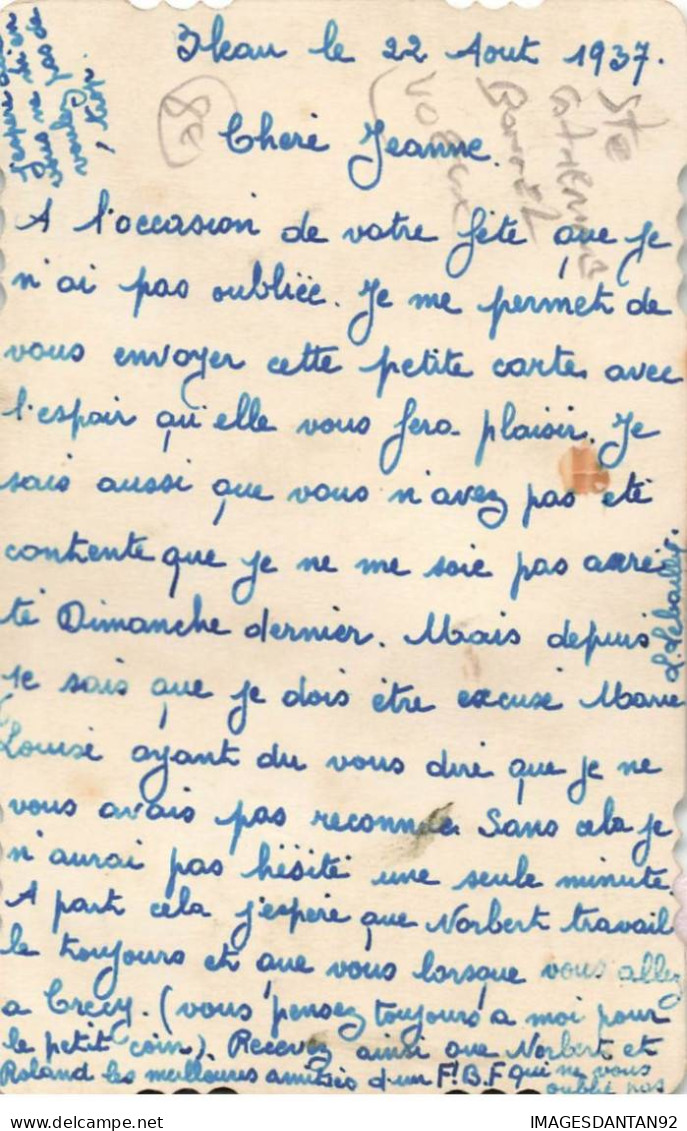 le 22 Aout 1937.
Cheré Jeanne.
A l'occasion de votre fête que je
n'ai pas oubliée. Je me permet de
vous envoyer cette petite carte avec
l'espoir qu'elle vous fera plaisir. Je
sais aussi que vous n'avez pas été
contente que je ne me soie pas arrê
té Dimanche dernier. Mais depuis
je sais que je dois être excusé Marie
Louise ayant du vous dire que je ne
vous avais pas reconnue. Sans cela je
n'aurai pas hésité une seule minute.
A part cela j'espère que Norbert travail
le toujours et que vous lorsque vous allez
a Crecy. (vous pensez toujours a moi pour
le petit coin). Recevez ainsi que Norbert et
Roland les meilleures amitiés d'un F.B.F qui ne vous
oublie pas
J'espère que
vous ne m'en
voulez pas de
trop.
Ste
8e
IMAGESDANTAN92